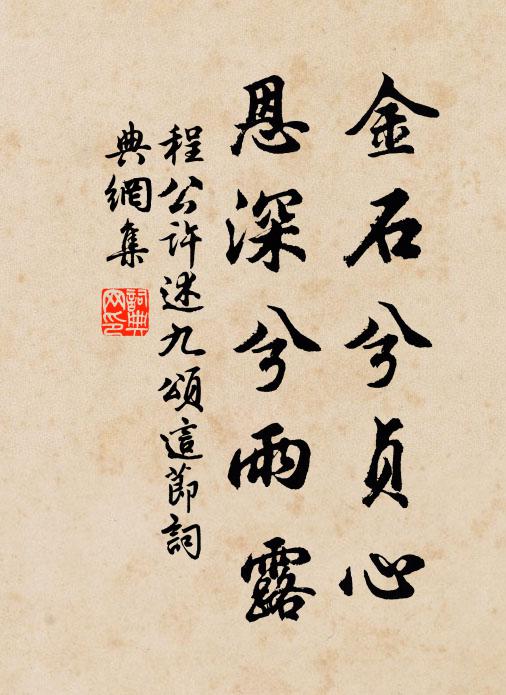 金石兮貞心
恩深兮雨露
程公許述九頌這節詞
典網集
詞典網印